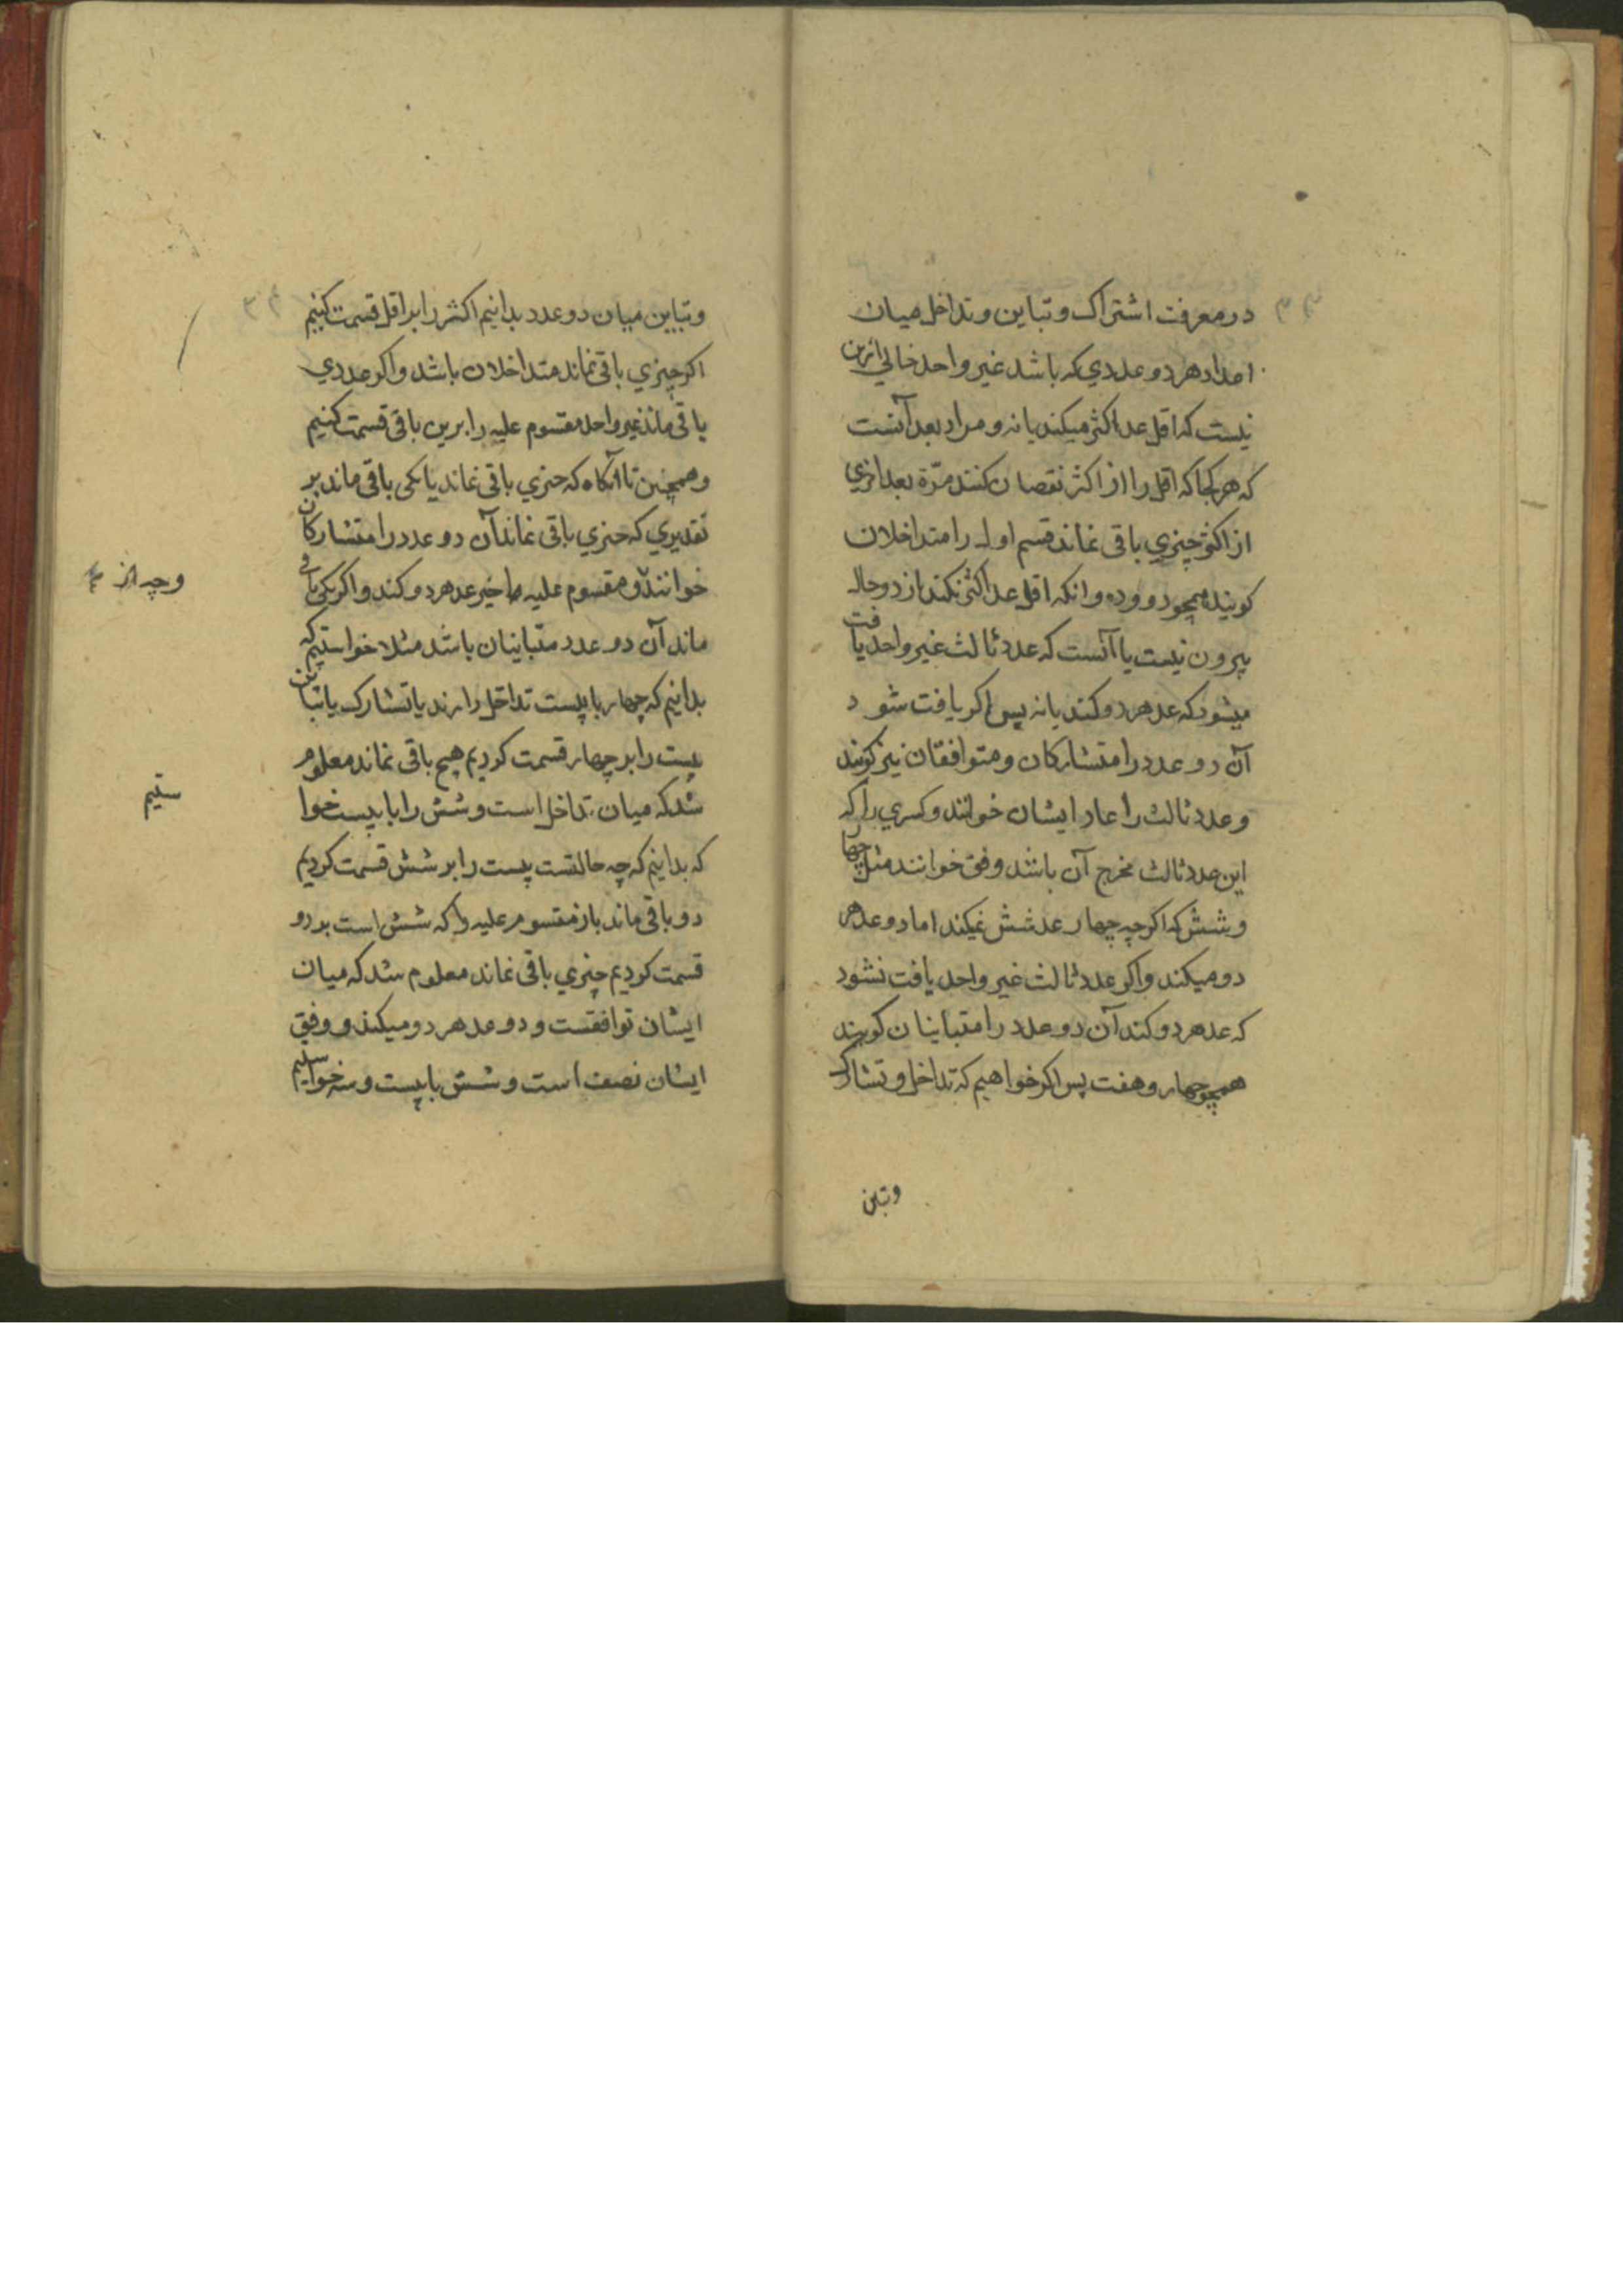 در معرفت اشتراک و تباین و تداخل میان
اعداد هر دو عددی که باشد غیر واحد خالی ازین
نیست که اقل عد اکثر میکند یا نه و مراد بعد آنست
که هر کجا که اقل را از اکثر نقصان کنند مرّة بعد اخری
از اکثر چیزی باقی نماند قسم اول را متداخلان
کویند همچو دو و ده و انکه اقل عد اکثر نکند از دو حال
بیرون نیست یا آنست که عدد ثالث غیر واحد یافت
میشود که عد هر دو کند یا نه پس اکر یافت شود
آن دو عدد را متشارکان و متوافقان نیز کویند
و عدد ثالث را عاد ایشان خوانند و کسری را که
این عدد ثالث مخرج آن باشد وفق خوانند مثل چهار
و شش که اکرچه چهار عد شش نمیکند اما دو عد هر
دو میکند و اکر عدد ثالث غیر واحد یافت نشود
که عد هر دو کند آن دو عدد را متباینان کویند
همچو چهار و هفت پس اکر خواهیم که تداخل و تشارک
وتبن
و تباین میان دو عدد بدانیم اکثر را بر اقل قسمت کنیم
اکر چیزی باقی نماند متداخلان باشد و اکر عددی
باقی ماند غیر واحد مقسوم علیه را برین باقی قسمت کنیم
و همچنین تا آنکاه که چیزی باقی نماند یا یکی باقی ماند بر
تقدیری که چیزی باقی نماند آن دو عدد را متشارکان
خوانند و مقسوم علیه اخیر عد هر دو کند و اکر یکی باقی
ماند آن دو عدد متباینان باشد مثلا خواستیم که
بدانیم که چهار با بیست تداخل دارند یا تشارک یا تباین
بیست را بر چهار قسمت کردیم هیچ باقی نماند معلوم
شد که میان تداخل است و شش را با بیست خوا
ستیم
که بدانیم که چه حالتست بیست را بر شش قسمت کردیم
دو باقی ماند باز مقسوم علیه را که شش است بر دو
قسمت کردیم چیزی باقی نماند معلوم شد که میان
ایشان توافقست و دو عد هر دو میکند و وفق
ایشان نصف است و شش با بیست و سه خواستیم